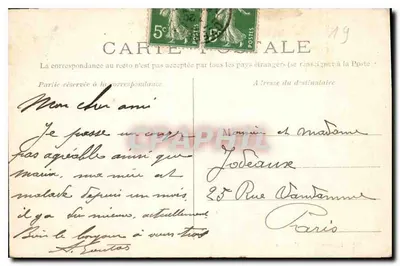 5c POSTES
15
19
CARTE POSTALE
La correspondance au recto n'est pas acceptée par tous les pays étrangers (se renseigner à la Poste)
Partie réservée à la correspondance
Adresse du destinataire
Mon cher ami
Je passe un
pas agréables ainsi que
ma mère est
malade depuis un mois
il y a du mieux actuellement
Bien le bonjour à vous tous
Monsieur et Madame
Jodeaux
25 Rue Vandamme
Paris